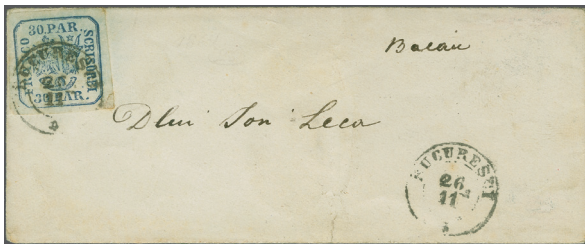 30.PAR.
FRANCO
SCRISOREI
30.PAR.
BUCURESSI
26
11
Bacău
Dlui Ion Leca
BUCURESSI
26
11